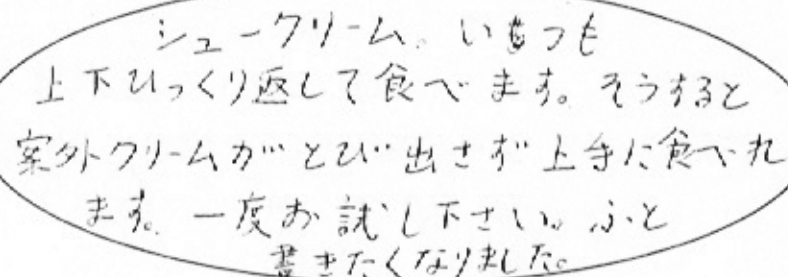 シュークリーム。いつも
上下ひっくり返して食べます。そうすると
案外クリームがとび出さず上手に食べれ
ます。一度お試し下さい。ふと
書きたくなりました。